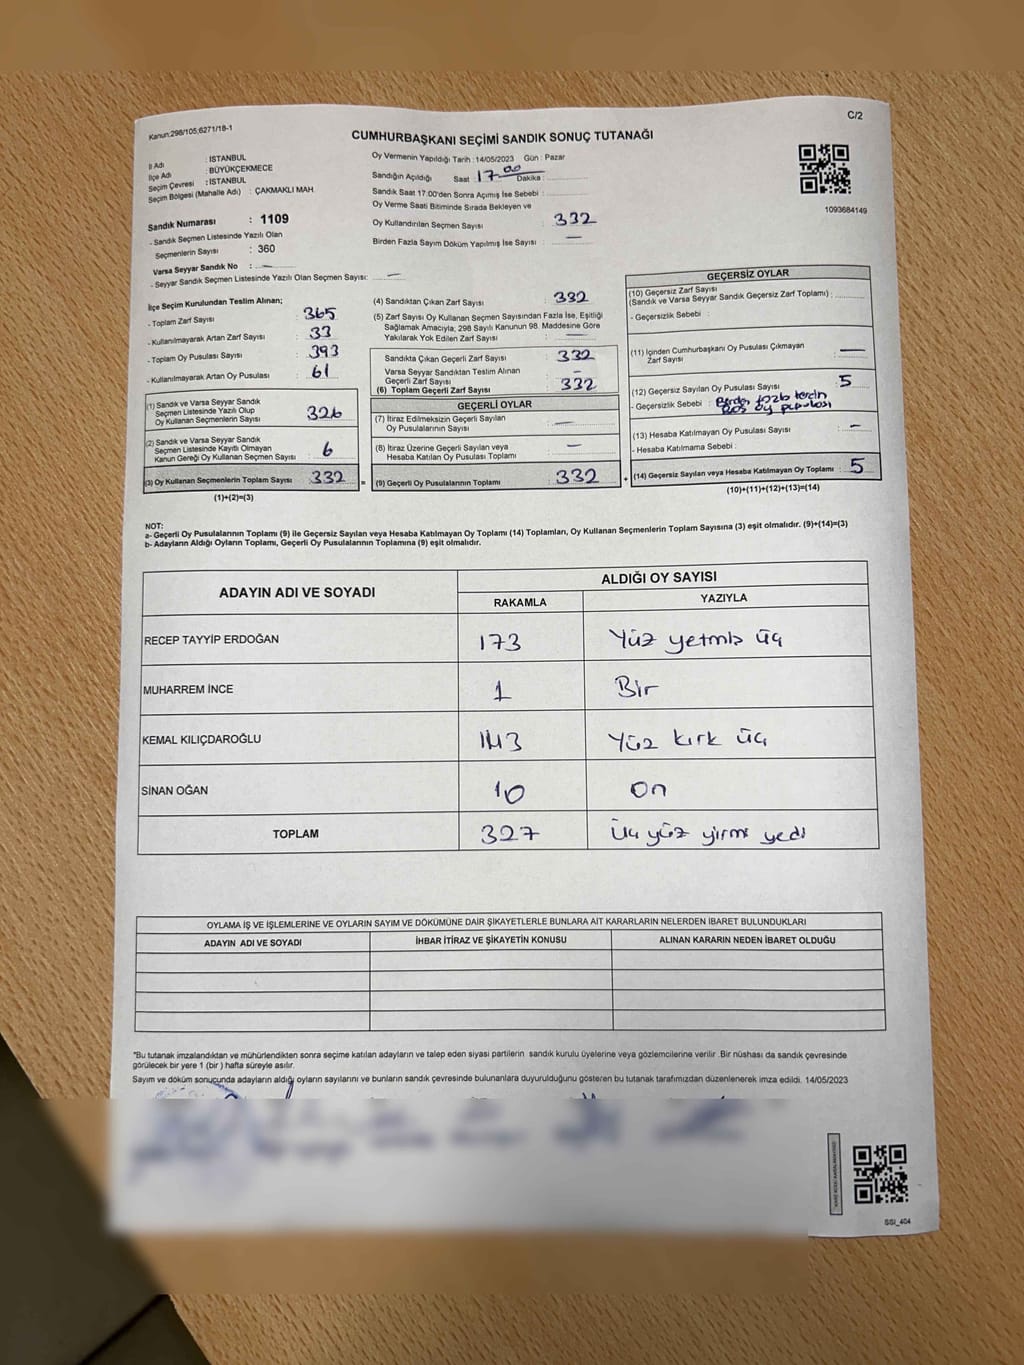 Kanun:298/105;6271/18-1
C/2
CUMHURBAŞKANI SEÇİMİ SANDIK SONUÇ TUTANAĞI
İl Adı : İSTANBUL
İlçe Adı : BÜYÜKÇEKMECE
Seçim Çevresi : İSTANBUL
Seçim Bölgesi (Mahalle Adı) : ÇAKMAKLI MAH.
Sandık Numarası : 1109
- Sandık Seçmen Listesinde Yazılı Olan
Seçmenlerin Sayısı : 360
Varsa Seyyar Sandık No : —
- Seyyar Sandık Seçmen Listesinde Yazılı Olan Seçmen Sayısı: —
Oy Vermenin Yapıldığı Tarih : 14/05/2023 Gün : Pazar
Sandığın Açıldığı Saat 17 00 Dakika :
Sandık Saat 17:00'den Sonra Açımış İse Sebebi :
Oy Verme Saati Bitiminde Sırada Bekleyen ve
Oy Kullandırılan Seçmen Sayısı : 332
Birden Fazla Sayım Döküm Yapılmış İse Sayısı : —
1093684149
İlçe Seçim Kurulundan Teslim Alınan;
- Toplam Zarf Sayısı : 365
- Kullanılmayarak Artan Zarf Sayısı : 33
- Toplam Oy Pusulası Sayısı : 393
- Kullanılmayarak Artan Oy Pusulası : 61
(1) Sandık ve Varsa Seyyar Sandık
Seçmen Listesinde Yazılı Olup
Oy Kullanan Seçmenlerin Sayısı : 326
(2) Sandık ve Varsa Seyyar Sandık
Seçmen Listesinde Kayıtlı Olmayan
Kanun Gereği Oy Kullanan Seçmen Sayısı : 6
(3) Oy Kullanan Seçmenlerin Toplam Sayısı : 332 =
(1)+(2)=(3)
(4) Sandıktan Çıkan Zarf Sayısı : 332
(5) Zarf Sayısı Oy Kullanan Seçmen Sayısından Fazla İse, Eşitliği
Sağlamak Amacıyla; 298 Sayılı Kanunun 98. Maddesine Göre
Yakılarak Yok Edilen Zarf Sayısı : —
Sandıkta Çıkan Geçerli Zarf Sayısı : 332
Varsa Seyyar Sandıktan Teslim Alınan
Geçerli Zarf Sayısı : -
(6) Toplam Geçerli Zarf Sayısı : 332
GEÇERLİ OYLAR
(7) İtiraz Edilmeksizin Geçerli Sayılan
Oy Pusulalarının Sayısı : —
(8) İtiraz Üzerine Geçerli Sayılan veya
Hesaba Katılan Oy Pusulası Toplamı : —
(9) Geçerli Oy Pusulalarının Toplamı : 332 +
GEÇERSİZ OYLAR
(10) Geçersiz Zarf Sayısı
(Sandık ve Varsa Seyyar Sandık Geçersiz Zarf Toplamı) :
- Geçersizlik Sebebi :
(11) İçinden Cumhurbaşkanı Oy Pusulası Çıkmayan
Zarf Sayısı : —
(12) Geçersiz Sayılan Oy Pusulası Sayısı : 5
- Geçersizlik Sebebi : Birden fazla tercih
Boş oy pusulası
(13) Hesaba Katılmayan Oy Pusulası Sayısı : -
- Hesaba Katılmama Sebebi :
(14) Geçersiz Sayılan veya Hesaba Katılmayan Oy Toplamı : 5
(10)+(11)+(12)+(13)=(14)
NOT:
a- Geçerli Oy Pusulalarının Toplamı (9) ile Geçersiz Sayılan veya Hesaba Katılmayan Oy Toplamı (14) Toplamları, Oy Kullanan Seçmenlerin Toplam Sayısına (3) eşit olmalıdır. (9)+(14)=(3)
b- Adayların Aldığı Oyların Toplamı, Geçerli Oy Pusulalarının Toplamına (9) eşit olmalıdır.
ADAYIN ADI VE SOYADI
ALDIĞI OY SAYISI
RAKAMLA YAZIYLA
RECEP TAYYİP ERDOĞAN 173 Yüz yetmiş üç
MUHARREM İNCE 1 Bir
KEMAL KILIÇDAROĞLU 143 Yüz kırk üç
SİNAN OĞAN 10 On
TOPLAM 327 Üç yüz yirmi yedi
OYLAMA İŞ VE İŞLEMLERİNE VE OYLARIN SAYIM VE DÖKÜMÜNE DAİR ŞİKAYETLERLE BUNLARA AİT KARARLARIN NELERDEN İBARET BULUNDUKLARI
ADAYIN ADI VE SOYADI İHBAR İTİRAZ VE ŞİKAYETİN KONUSU ALINAN KARARIN NEDEN İBARET OLDUĞU
"Bu tutanak imzalandıktan ve mühürlendikten sonra seçime katılan adayların ve talep eden siyasi partilerin sandık kurulu üyelerine veya gözlemcilerine verilir .Bir nüshası da sandık çevresinde
görülecek bir yere 1 (bir ) hafta süreyle asılır.
Sayım ve döküm sonucunda adayların aldığı oyların sayılarını ve bunların sandık çevresinde bulunanlara duyurulduğunu gösteren bu tutanak tarafımızdan düzenlenerek imza edildi. 14/05/2023
SSI_404